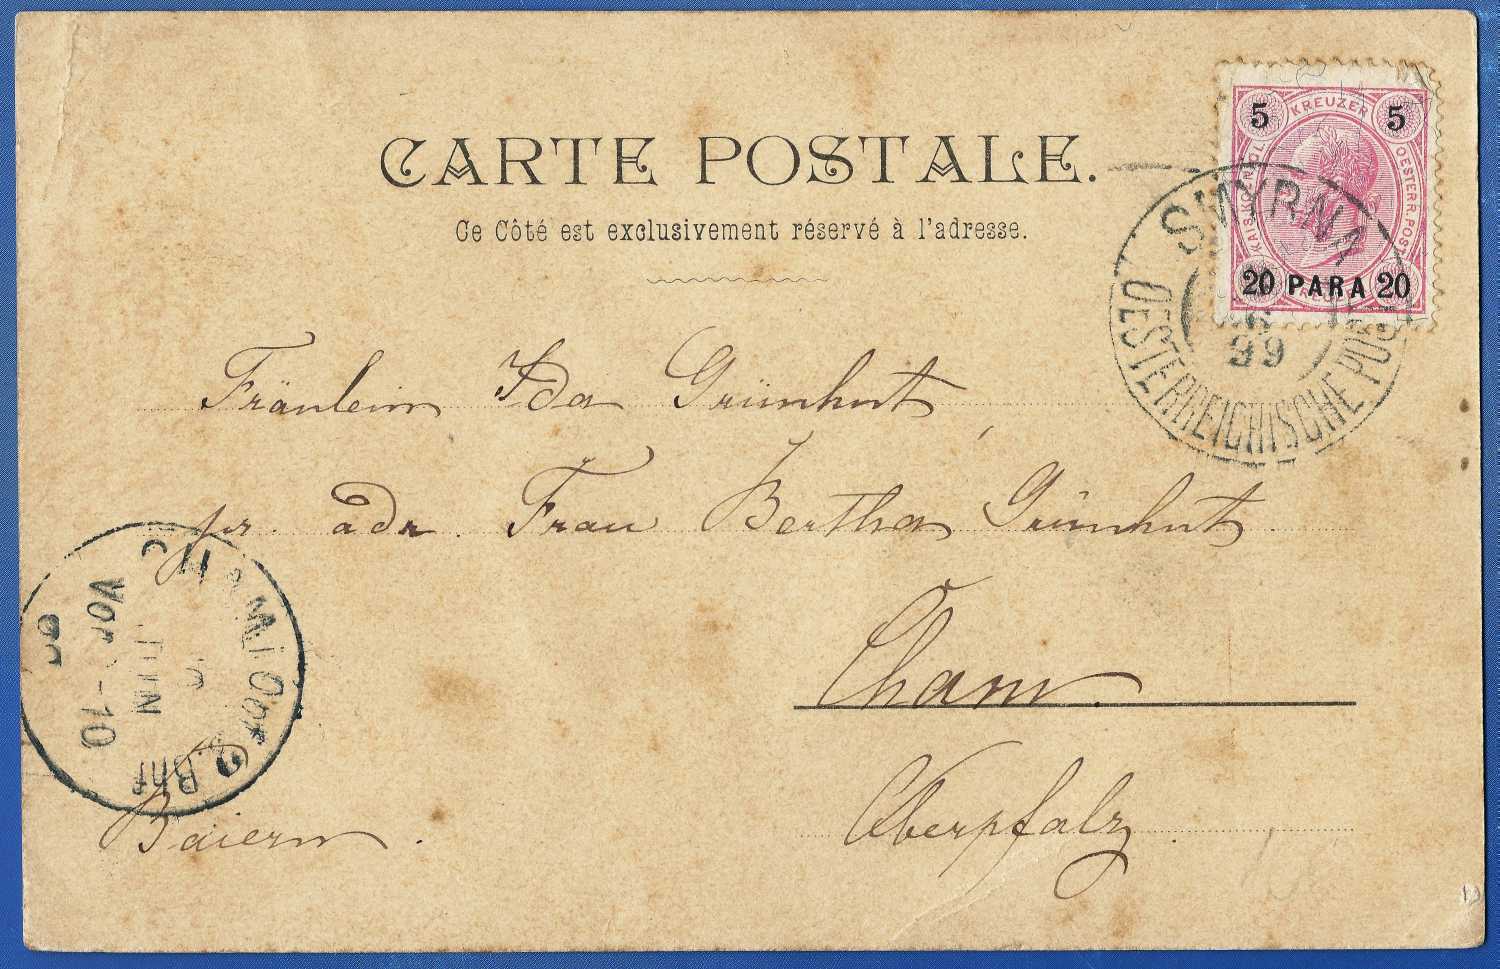 CARTE POSTALE.
Ce Côté est exclusivement réservé à l'adresse.
5 KREUZER 5
KAIS. KOENIGL. OESTERR. POST
20 PARA 20
SMYRNA
6
99
OESTERREICHISCHE POST
Fräulein Ida Grünhut,
pr. adr. Frau Bertha Grünhut
Cham.
Oberpfalz
Baiern.
CHAM i Obpf
Bhf
JUN
Vor -10
99